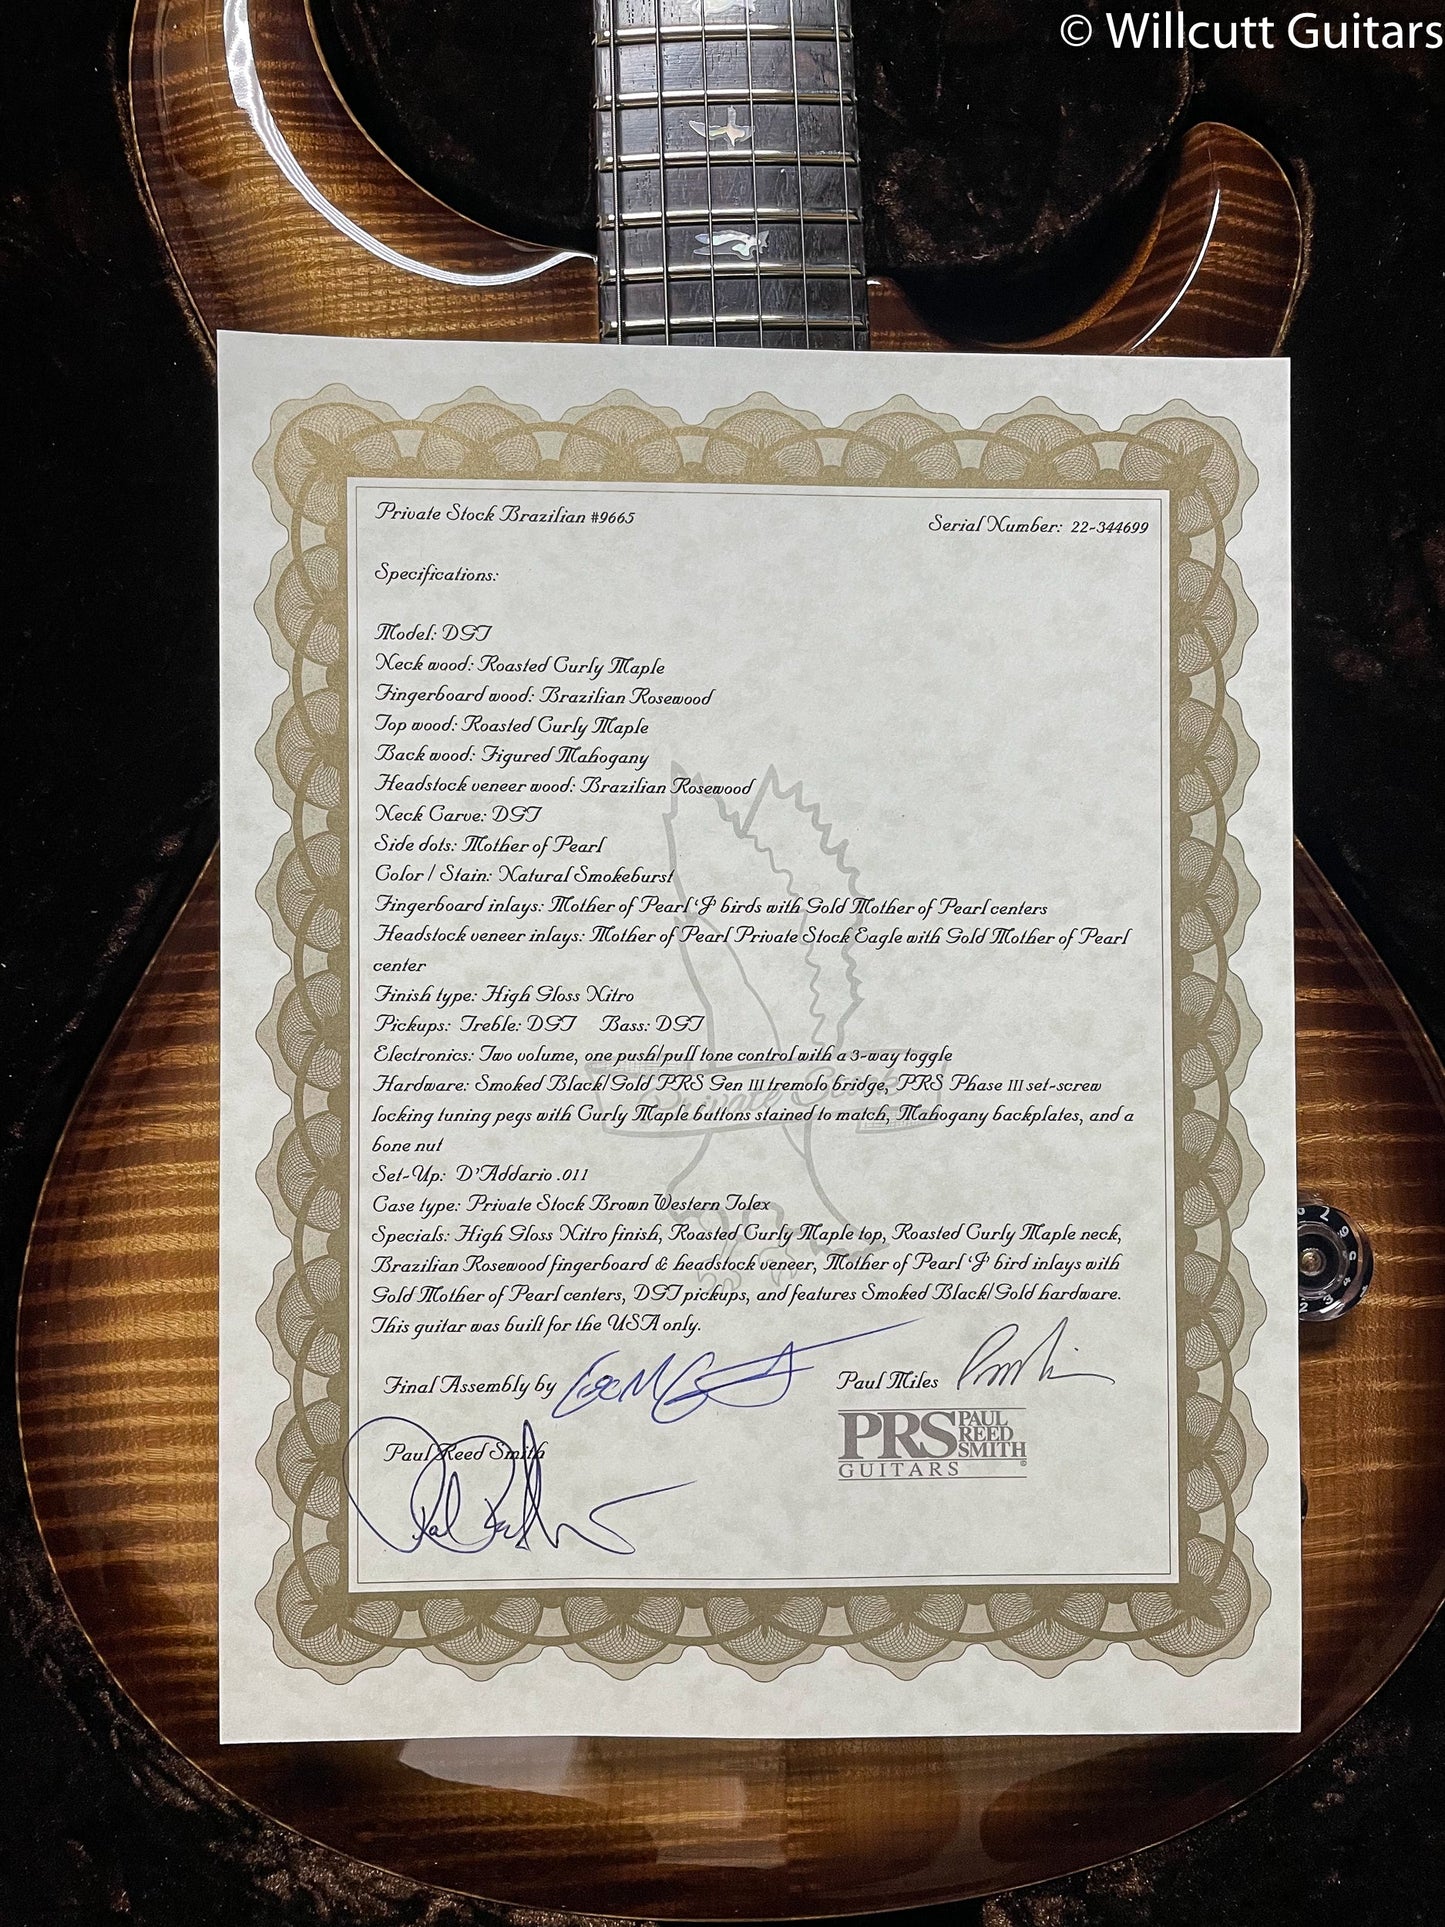 © Willcutt Guitars
Private Stock Brazilian #9665
Serial Number: 22-344699
Specifications:
Model: DGT
Neck wood: Roasted Curly Maple
Fingerboard wood: Brazilian Rosewood
Top wood: Roasted Curly Maple
Back wood: Figured Mahogany
Headstock veneer wood: Brazilian Rosewood
Neck Carve: DGT
Side dots: Mother of Pearl
Color / Stain: Natural Smokeburst
Fingerboard inlays: Mother of Pearl 'J' birds with Gold Mother of Pearl centers
Headstock veneer inlays: Mother of Pearl Private Stock Eagle with Gold Mother of Pearl
center
Finish type: High Gloss Nitro
Pickups: Treble: DGT Bass: DGT
Electronics: Two volume, one push/pull tone control with a 3-way toggle
Hardware: Smoked Black/Gold PRS Gen III tremolo bridge, PRS Phase III set-screw
locking tuning pegs with Curly Maple buttons stained to match, Mahogany backplates, and a
bone nut
Set-Up: D'Addario .011
Case type: Private Stock Brown Western Tolex
Specials: High Gloss Nitro finish, Roasted Curly Maple top, Roasted Curly Maple neck,
Brazilian Rosewood fingerboard & headstock veneer, Mother of Pearl 'J' bird inlays with
Gold Mother of Pearl centers, DGT pickups, and features Smoked Black/Gold hardware.
This guitar was built for the USA only.
Private Stock
Final Assembly by
Paul Miles
Paul Reed Smith
PRS PAUL
REED
SMITH
GUITARS